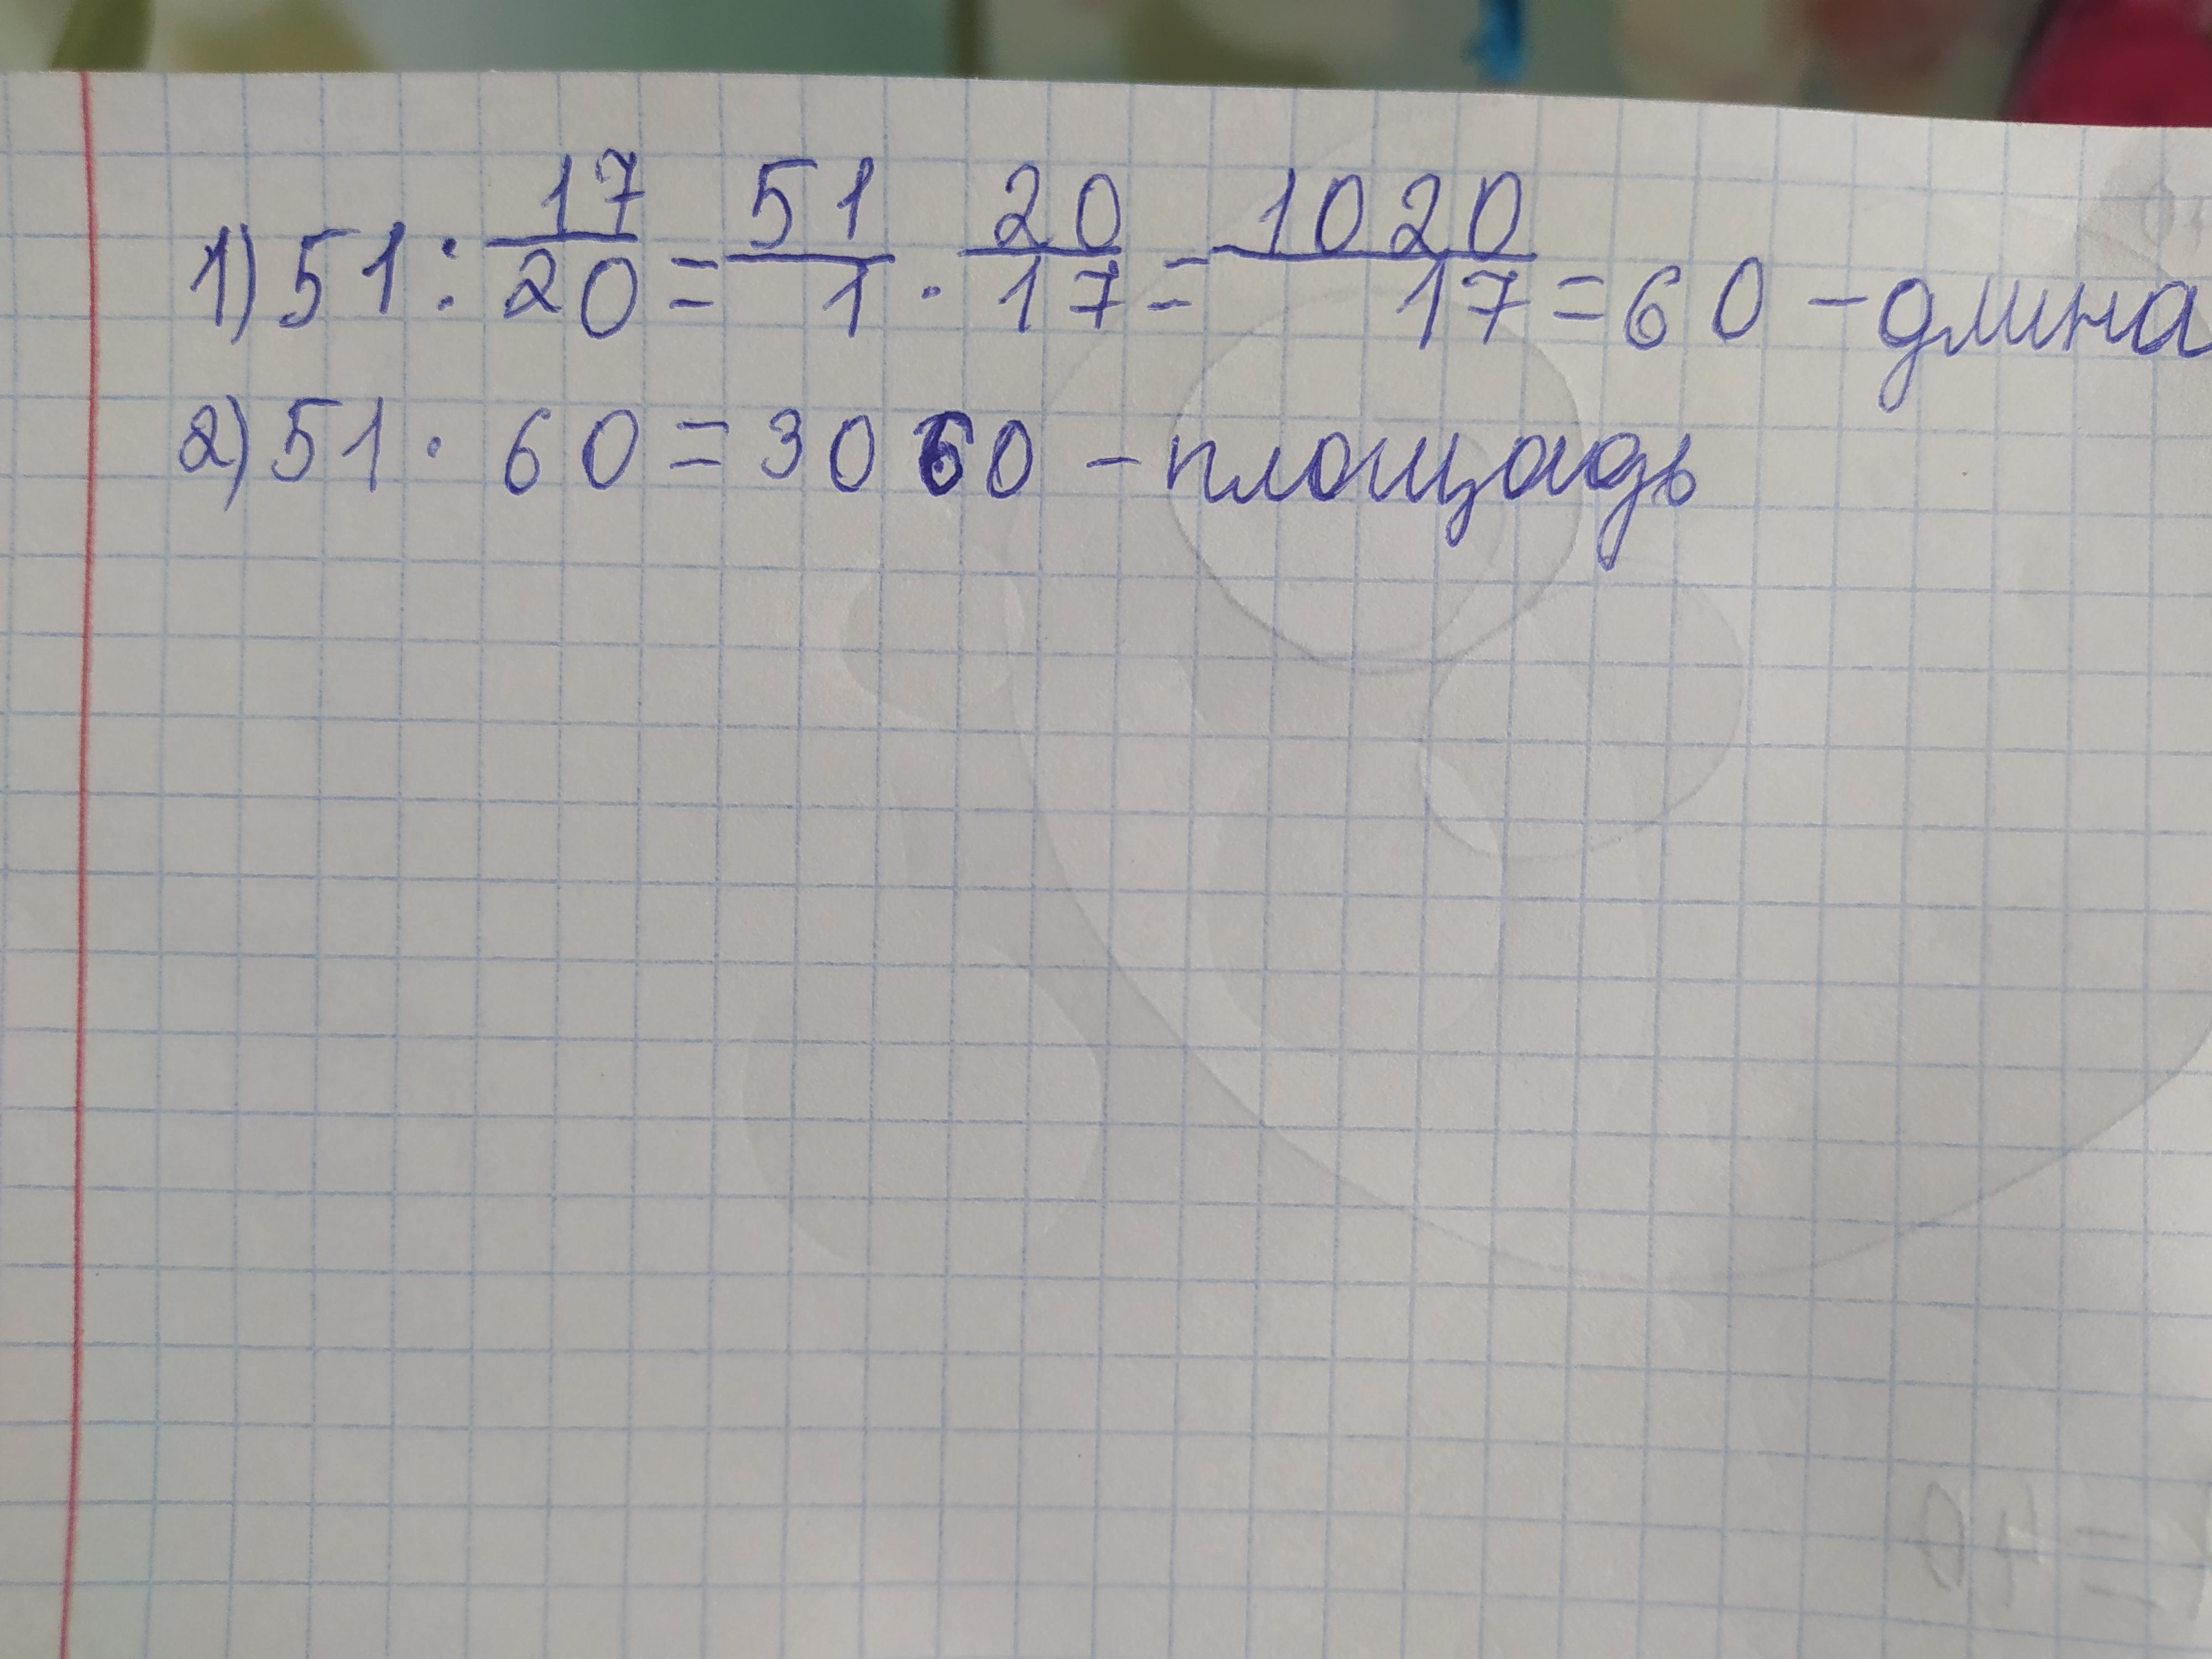 1) 51 : 17/20 = 51/1 · 20/17 = 1020/17 = 60 – длина
2) 51 · 60 = 3060 – площадь